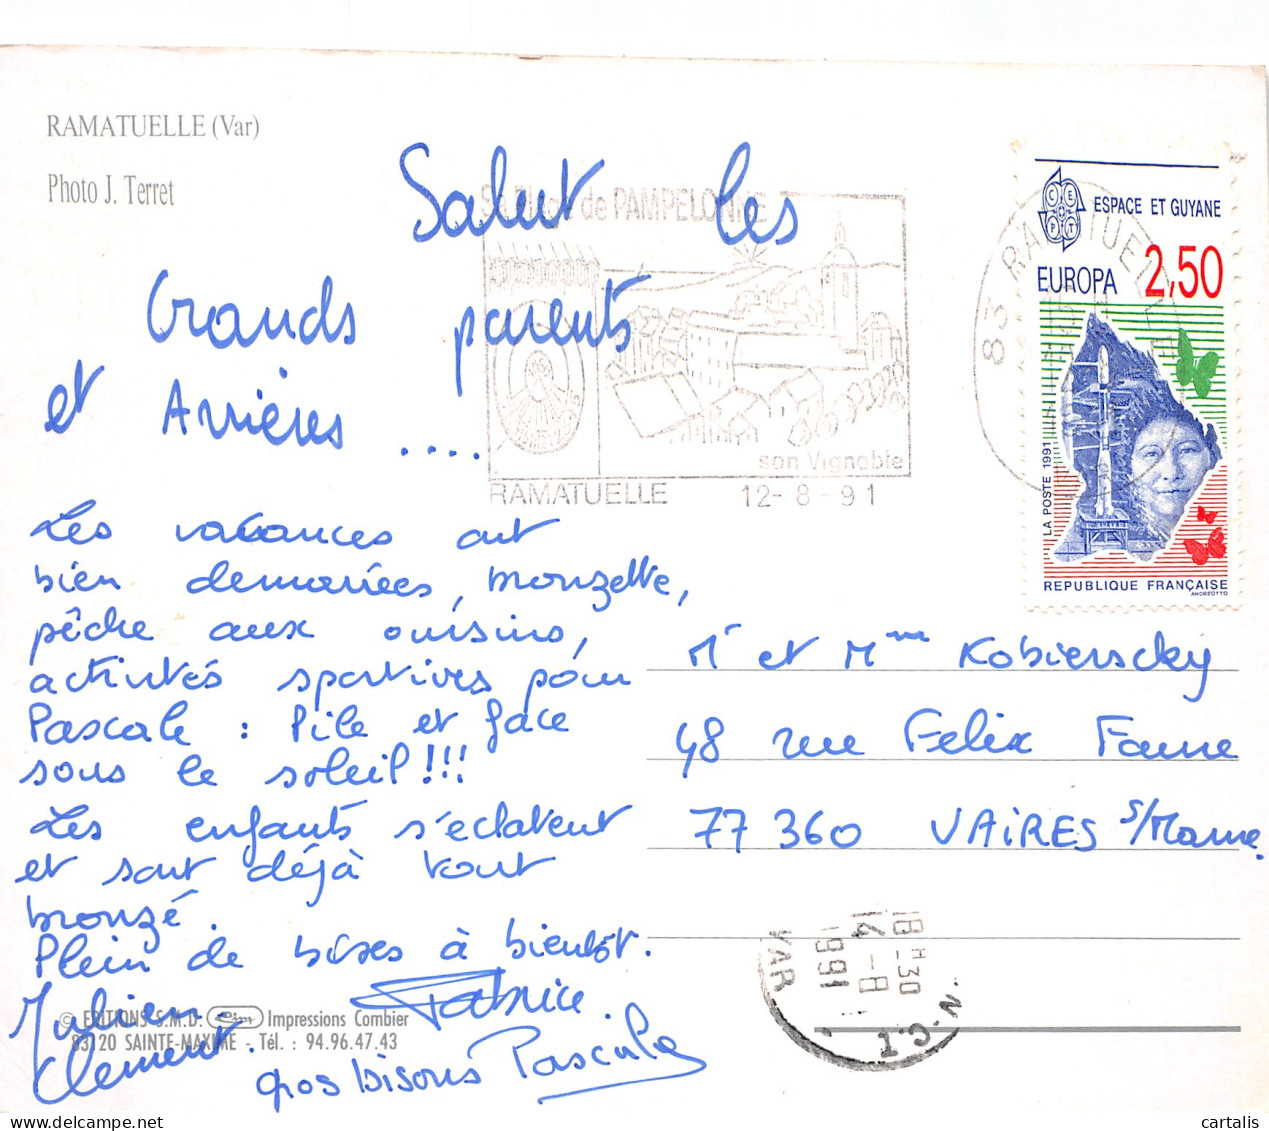 RAMATUELLE (Var)
Photo J. Terret
Salut les
Grands parents
et Arrières ....
Les vacances ont
bien demarrées, bronzette,
pêche aux oursins,
activités sportives pour
Pascale : Pile et face
sous le soleil !!!
Les enfants s'eclatent
et sont déjà tout
bronzé.
Plein de bises à bientôt.
Julien
Fabrice
Clement.
gros bisous Pascale
© EDITIONS S.M.D. Impressions Combier
83120 SAINTE-MAXIME - Tél. : 94.96.47.43
Sa Plage de PAMPELONNE
son Vignoble
RAMATUELLE 12-8-91
83 RAMATUELLE
CEPT
ESPACE ET GUYANE
EUROPA 2,50
LA POSTE 1991
REPUBLIQUE FRANÇAISE
ANDREOTTO
Mr et Mme Kobierscky
48 rue Felix Faure
77 360 VAiRES s/Marne.
18H30
14-8
1991
VAR
cartalis
www.delcampe.net